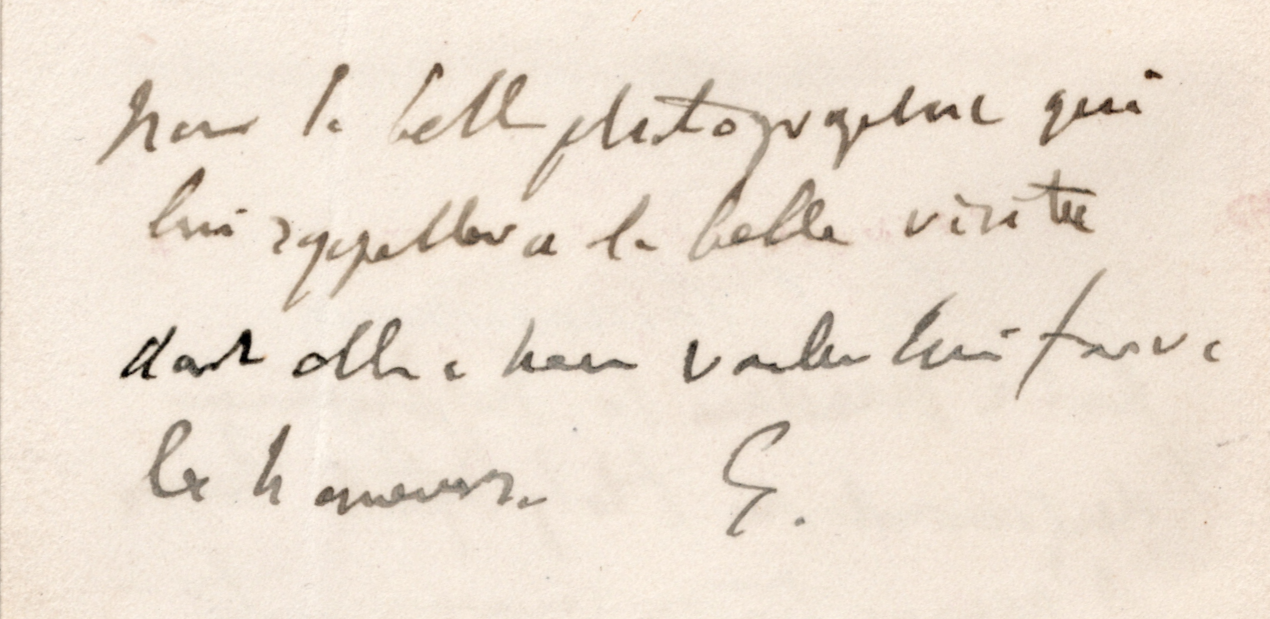 pour la belle photographie qui
lui rappellera la belle visite
dont elle a bien voulu lui faire
les honneurs. G.